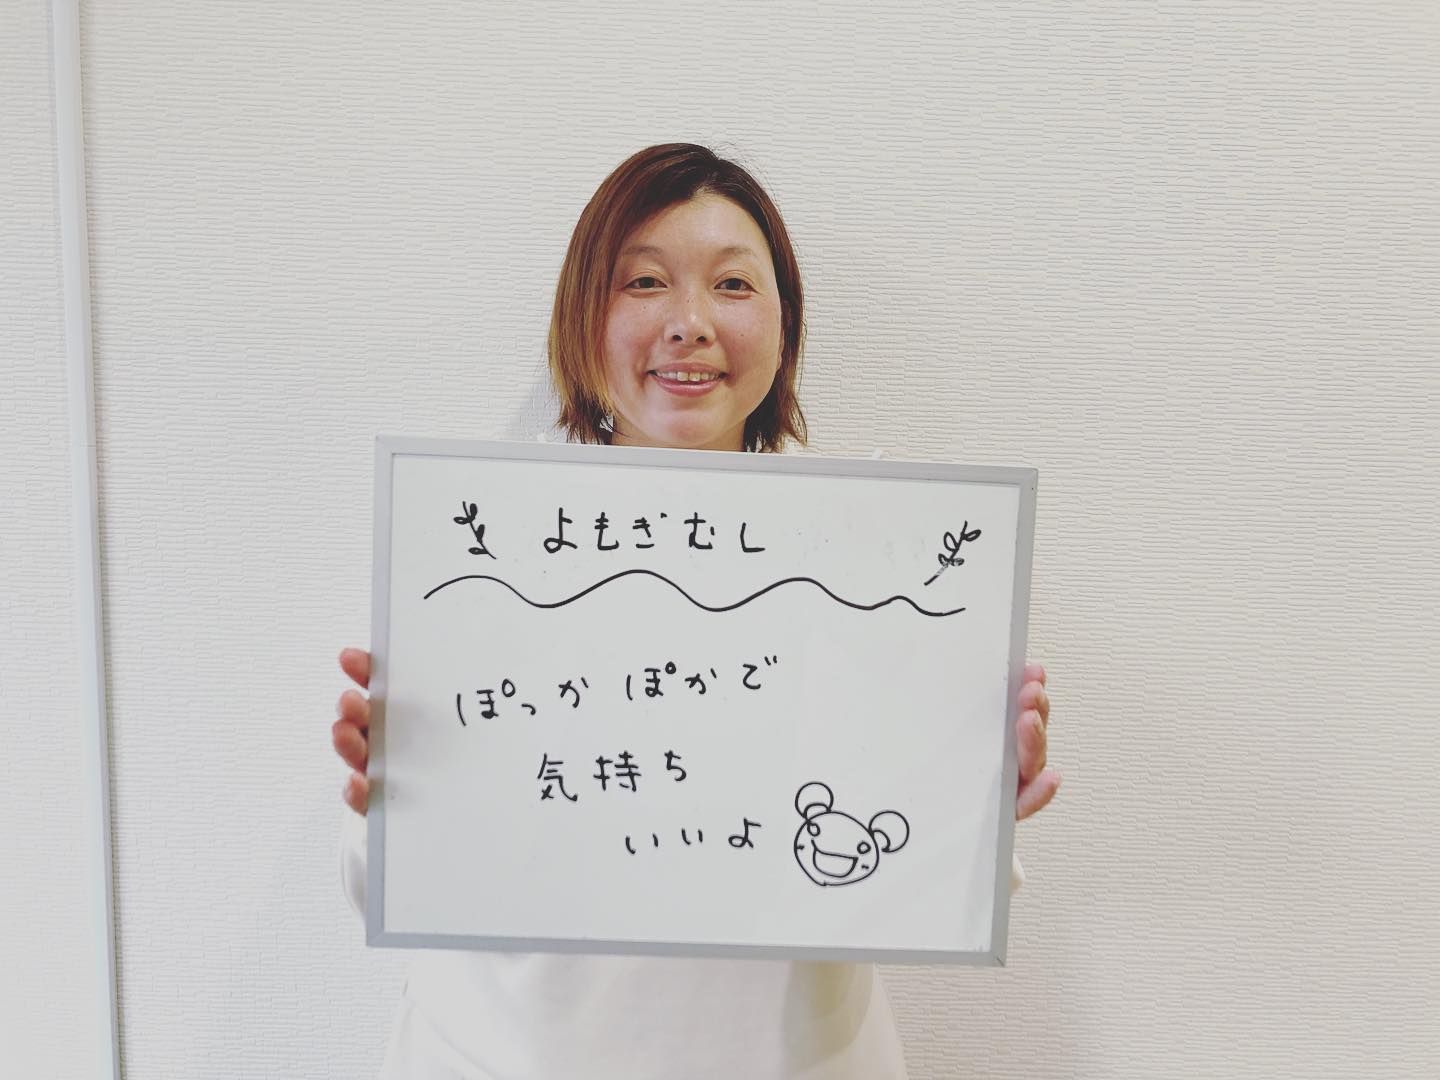 よもぎむし
ぽっかぽかで
気持ち
いいよ